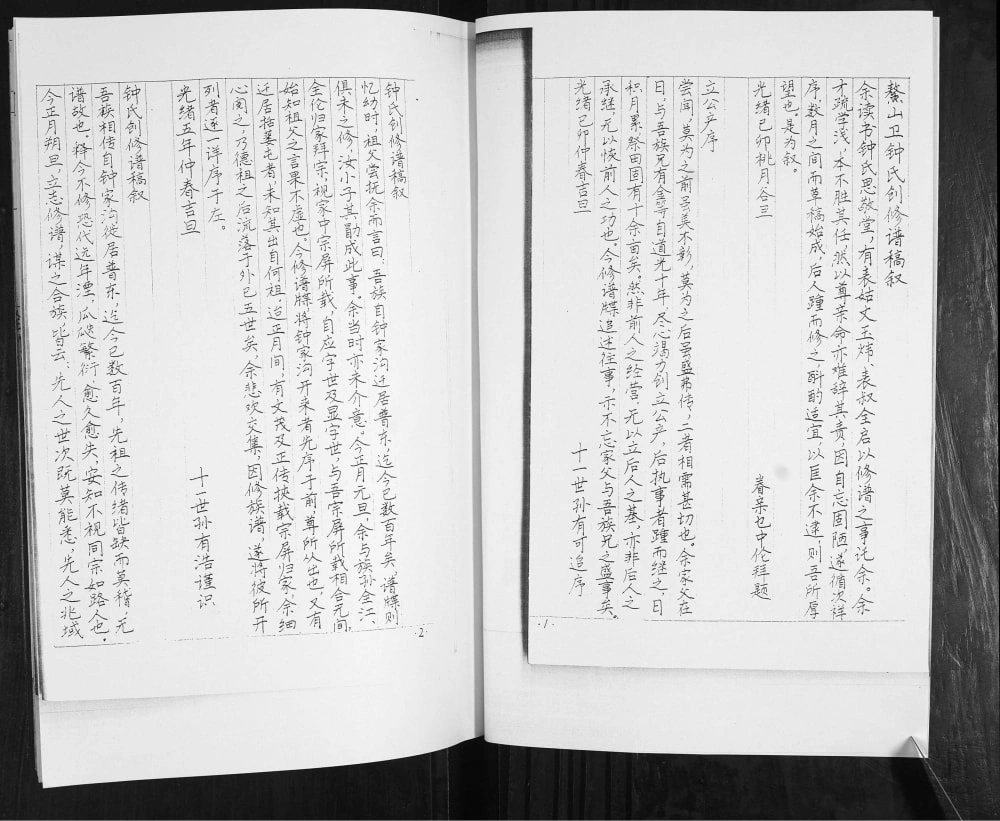 鳌山卫钟氏创修谱稿叙
余读书钟氏思敬堂,有表姑丈玉炜、表叔全启以修谱之事托余。余
才疏学浅,本不胜其任,然以尊亲命亦难辞其责,因自忘固陋,遂循次详
序,数月之间而草稿始成,后人踵而修之,斟酌适宜,以匡余不逮,则吾所厚
望也。是为叙。
眷亲乜中伦拜题
光绪己卯桃月谷三
立公产序
尝闻,莫为之前虽美不彰,莫为之后虽盛弗传,二者相需甚切也。余家父在
日,与吾族兄有鑫等自道光十年,尽心竭力创立公产,后执事者踵而继之,日
积月累祭田固有十余亩矣。然非前人之经营,无以立后人之基,亦非后人之
承继,无以恢前人之功也。今修谱牒追述往事,示不忘家父与吾族兄之盛事矣。
十一世孙有可追序
光绪己卯仲春吉旦
·1·
钟氏创修谱稿叙
忆幼时,祖父尝抚余而言曰:吾族自钟家沟迁居普东,迄今已数百年矣,谱牒则
俱未之修,汝小子其勖成此事。余当时亦未介意。今正月元旦,余与族孙全江、
全伦归家拜宗,视家中宗屏所载,自应字世及显字世,与吾宗屏所载相合无间,
始知祖父之言果不虚也。今修谱牒,将钟家沟开来者先序于前,尊所从出也。又有
迁居括萋屯者,未知其出自何祖,迨正月间,有文茂及正传挟载宗屏归家,余细
心阅之,乃德祖之后流落于外已五世矣,余悲欢交集,因修族谱,遂将彼所开
列者逐一详序于左。
十一世孙有浩谨识
光绪五年仲春吉旦
钟氏创修谱稿叙
吾族相传自钟家沟徙居普东,迄今已数百年,先祖之传绪皆缺而莫稽,无
谱故也。释今不修,恐代远年湮,瓜瓞繁衍,愈久愈失,安知不视同宗如路人也。
今正月朔旦,立志修谱,谋之合族,皆云:先人之世次既莫能悉,先人之兆域
·2·